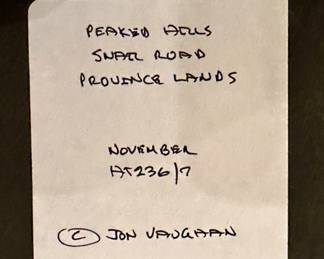 PEAKED HILLS
SNAIL ROAD
PROVINCE LANDS
NOVEMBER
AT236/7
© JON VAUGHAN